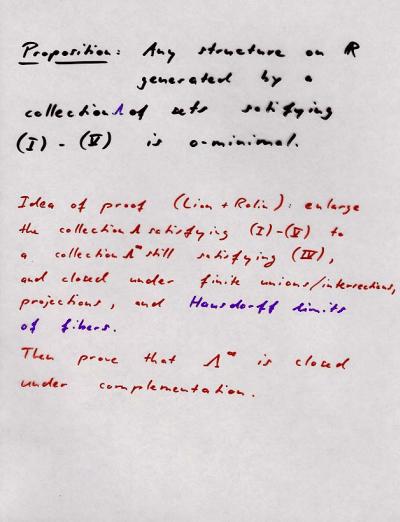 Proposition: Any structure on ℝ
generated by a
collection Λ of sets satisfying
(I) - (V) is o-minimal.
Idea of proof (Lion + Rolin): enlarge
the collection Λ satisfying (I)-(V) to
a collection Λ^∞ still satisfying (IV),
and closed under finite unions/intersections,
projections, and Hausdorff limits
of fibers.
Then prove that Λ^∞ is closed
under complementation.